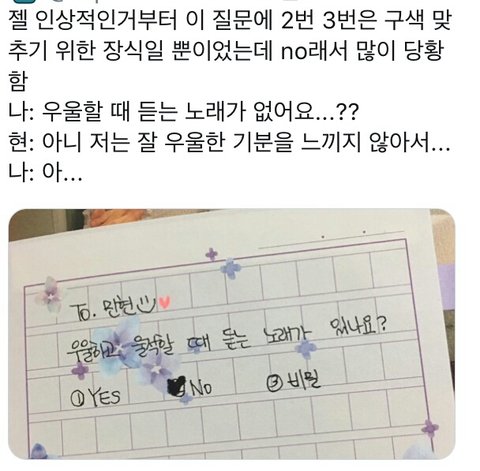 젤 인상적인거부터 이 질문에 2번 3번은 구색 맞
추기 위한 장식일 뿐이었는데 no래서 많이 당황
함
나: 우울할 때 듣는 노래가 없어요...??
현: 아니 저는 잘 우울한 기분을 느끼지 않아서...
나: 아...
To. 민현
우울하고, 울적할 때 듣는 노래가 있나요?
①YES NO ③비밀